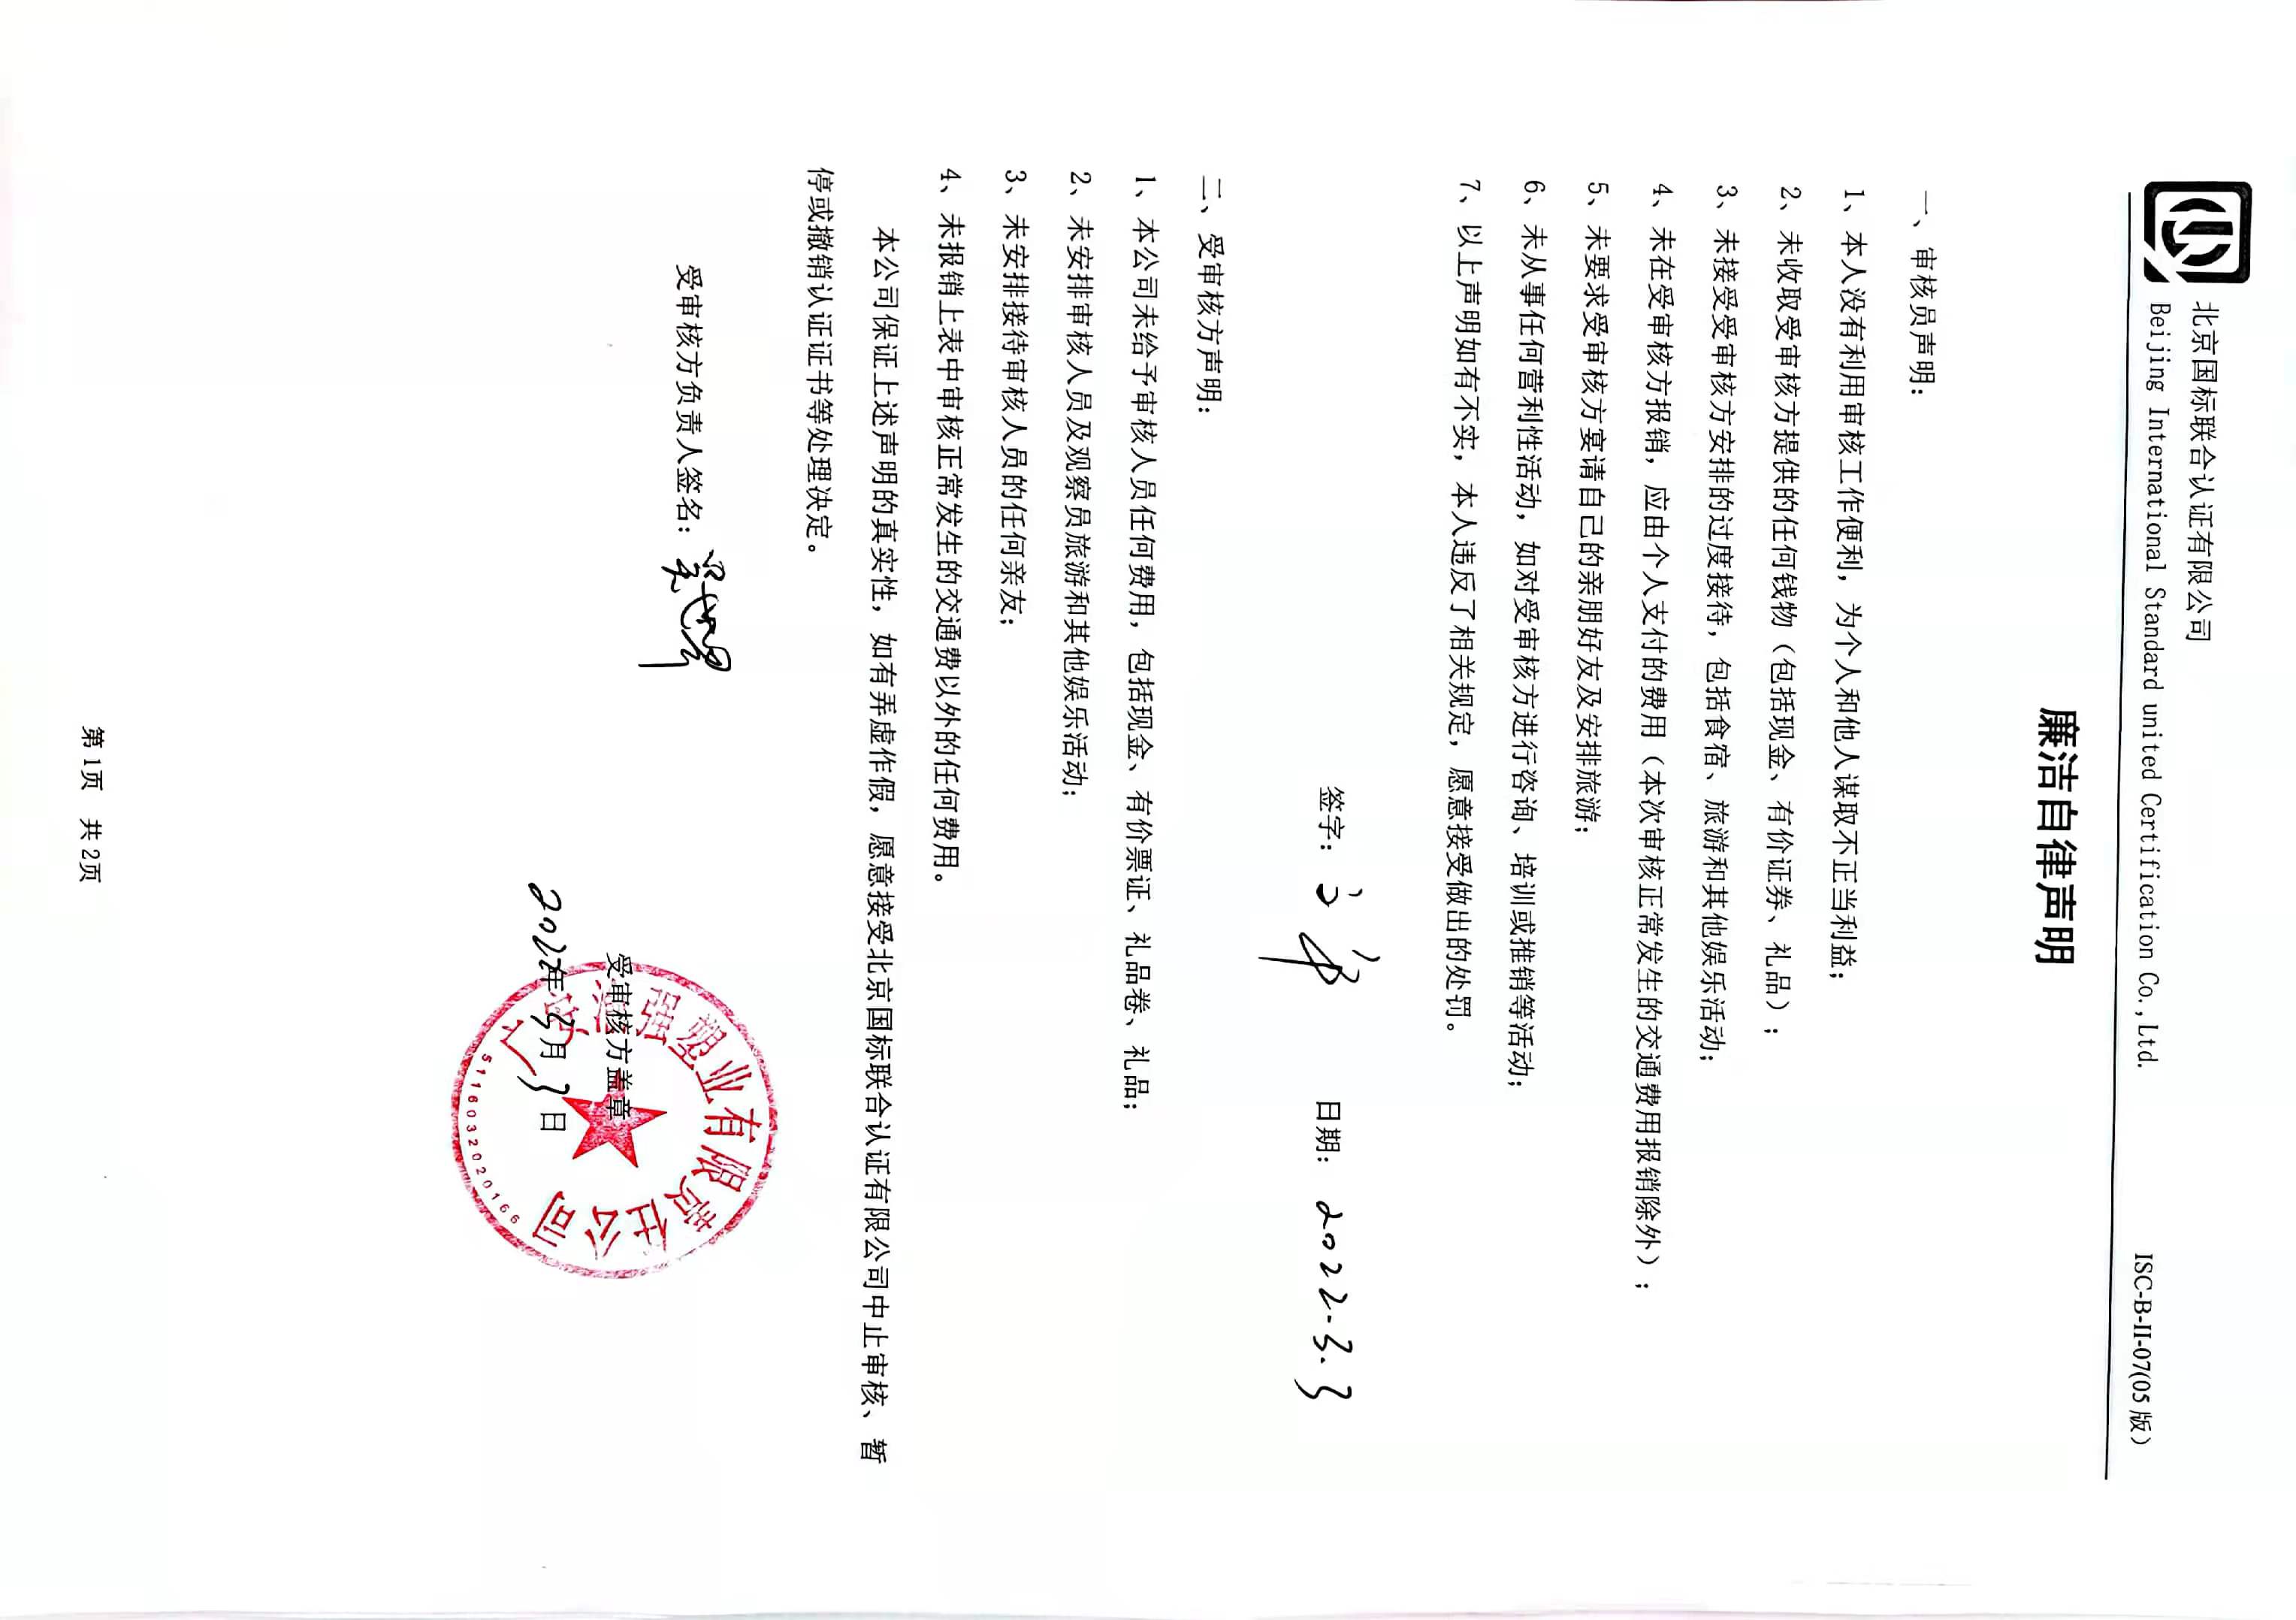 北京国标联合认证有限公司
Beijing International Standard united Certification Co.,Ltd.
ISC-B-II-07(05 版)
廉洁自律声明
一、审核员声明:
1、本人没有利用审核工作便利，为个人和他人谋取不正当利益;
2、未收取受审核方提供的任何钱物（包括现金、有价证券、礼品）;
3、未接受受审核方安排的过度接待，包括食宿、旅游和其他娱乐活动;
4、未在受审核方报销，应由个人支付的费用（本次审核正常发生的交通费用报销除外）;
5、未要求受审核方宴请自己的亲朋好友及安排旅游;
6、未从事任何营利性活动，如对受审核方进行咨询、培训或推销等活动;
7、以上声明如有不实，本人违反了相关规定，愿意接受做出的处罚。
签字: 日期: 2022.3.3
二、受审核方声明:
1、本公司未给予审核人员任何费用，包括现金、有价票证、礼品卷、礼品;
2、未安排审核人员及观察员旅游和其他娱乐活动;
3、未安排接待审核人员的任何亲友;
4、未报销上表中审核正常发生的交通费以外的任何费用。
本公司保证上述声明的真实性，如有弄虚作假，愿意接受北京国标联合认证有限公司中止审核、暂
停或撤销认证证书等处理决定。
受审核方负责人签名:
受审核方盖章
2022年3月3日
强塑业有限责任公司
5116032020166
第1页 共2页